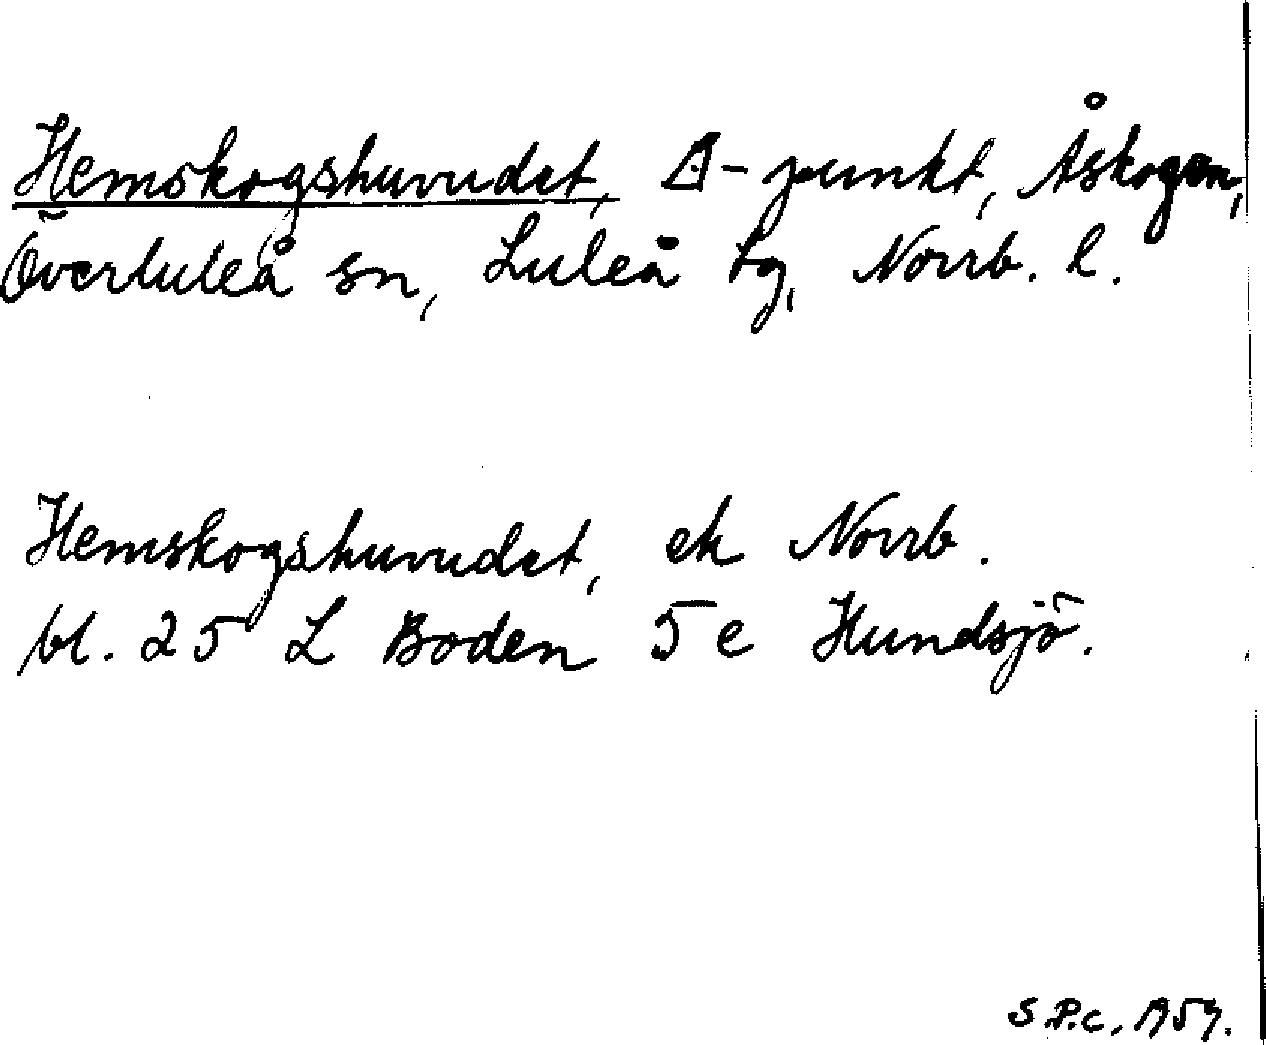 Hemskogshuvudet, Δ-punkt, Åskogen,
Överluleå sn, Luleå tg, Norrb. l.
Hemskogshuvudet, ek Norrb.
bl. 25 L Boden 5 e Hundsjö.
S.P.c.